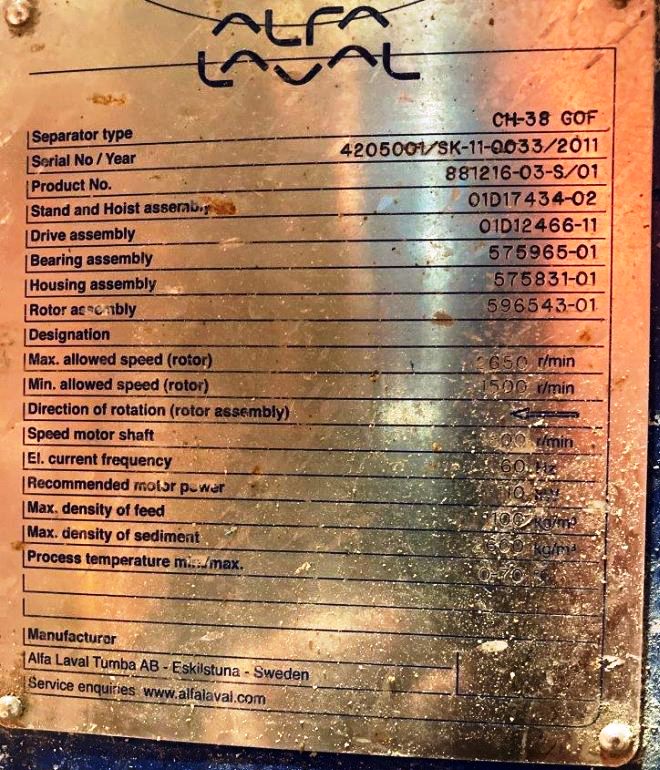 ALFA
LAVAL
Separator type CH-38 GOF
Serial No / Year 4205001/SK-11-0033/2011
Product No. 881216-03-S/01
Stand and Hoist assembly 01D17434-02
Drive assembly 01D12466-11
Bearing assembly 575965-01
Housing assembly 575831-01
Rotor assembly 596543-01
Designation
Max. allowed speed (rotor) r/min
Min. allowed speed (rotor) 1500 r/min
Direction of rotation (rotor assembly)
Speed motor shaft r/min
El. current frequency 60 Hz
Recommended motor power
Max. density of feed kg/m³
Max. density of sediment kg/m³
Process temperature min./max.
Manufacturer
Alfa Laval Tumba AB - Eskilstuna - Sweden
Service enquiries www.alfalaval.com